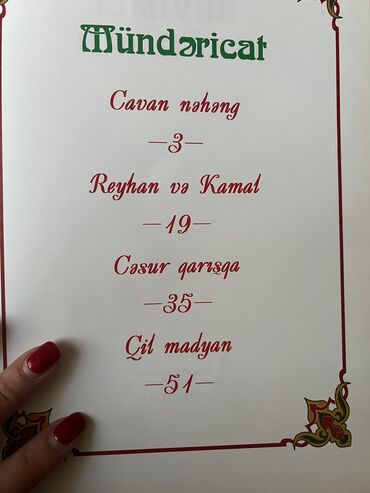 Mündəricat
Cavan nəhəng
—3—
Reyhan və Kamal
—19—
Cəsur qarışqa
—35—
Çil madyan
—51—